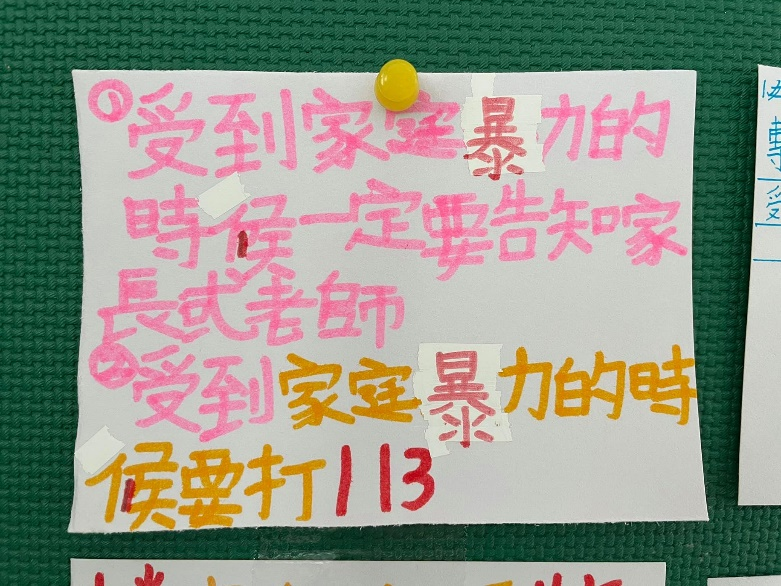 ①受到家庭暴力的
時候一定要告知家
長或老師
②受到家庭暴力的時
候要打113